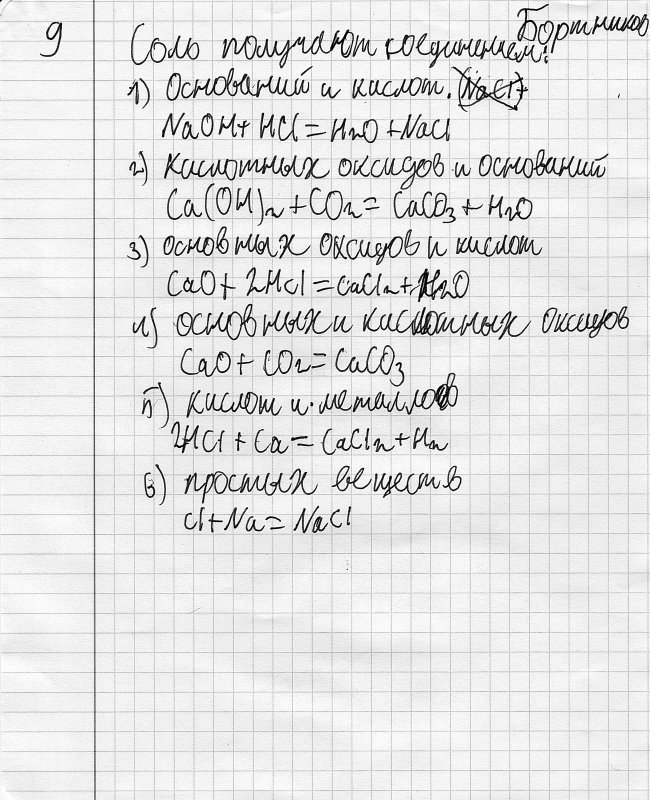 9
Бортников
Соль получают соединением:
1) Оснований и кислот. (NaCl)
NaOH + HCl = H2O + NaCl
2) кислотных оксидов и оснований
Ca(OH)2 + CO2 = CaCO3 + H2O
3) основных оксидов и кислот
CaO + 2HCl = CaCl2 + H2O
4) основных и кислотных оксидов
CaO + CO2 = CaCO3
5) кислот и металлов
2HCl + Ca = CaCl2 + H2
6) простых веществ
Cl + Na = NaCl